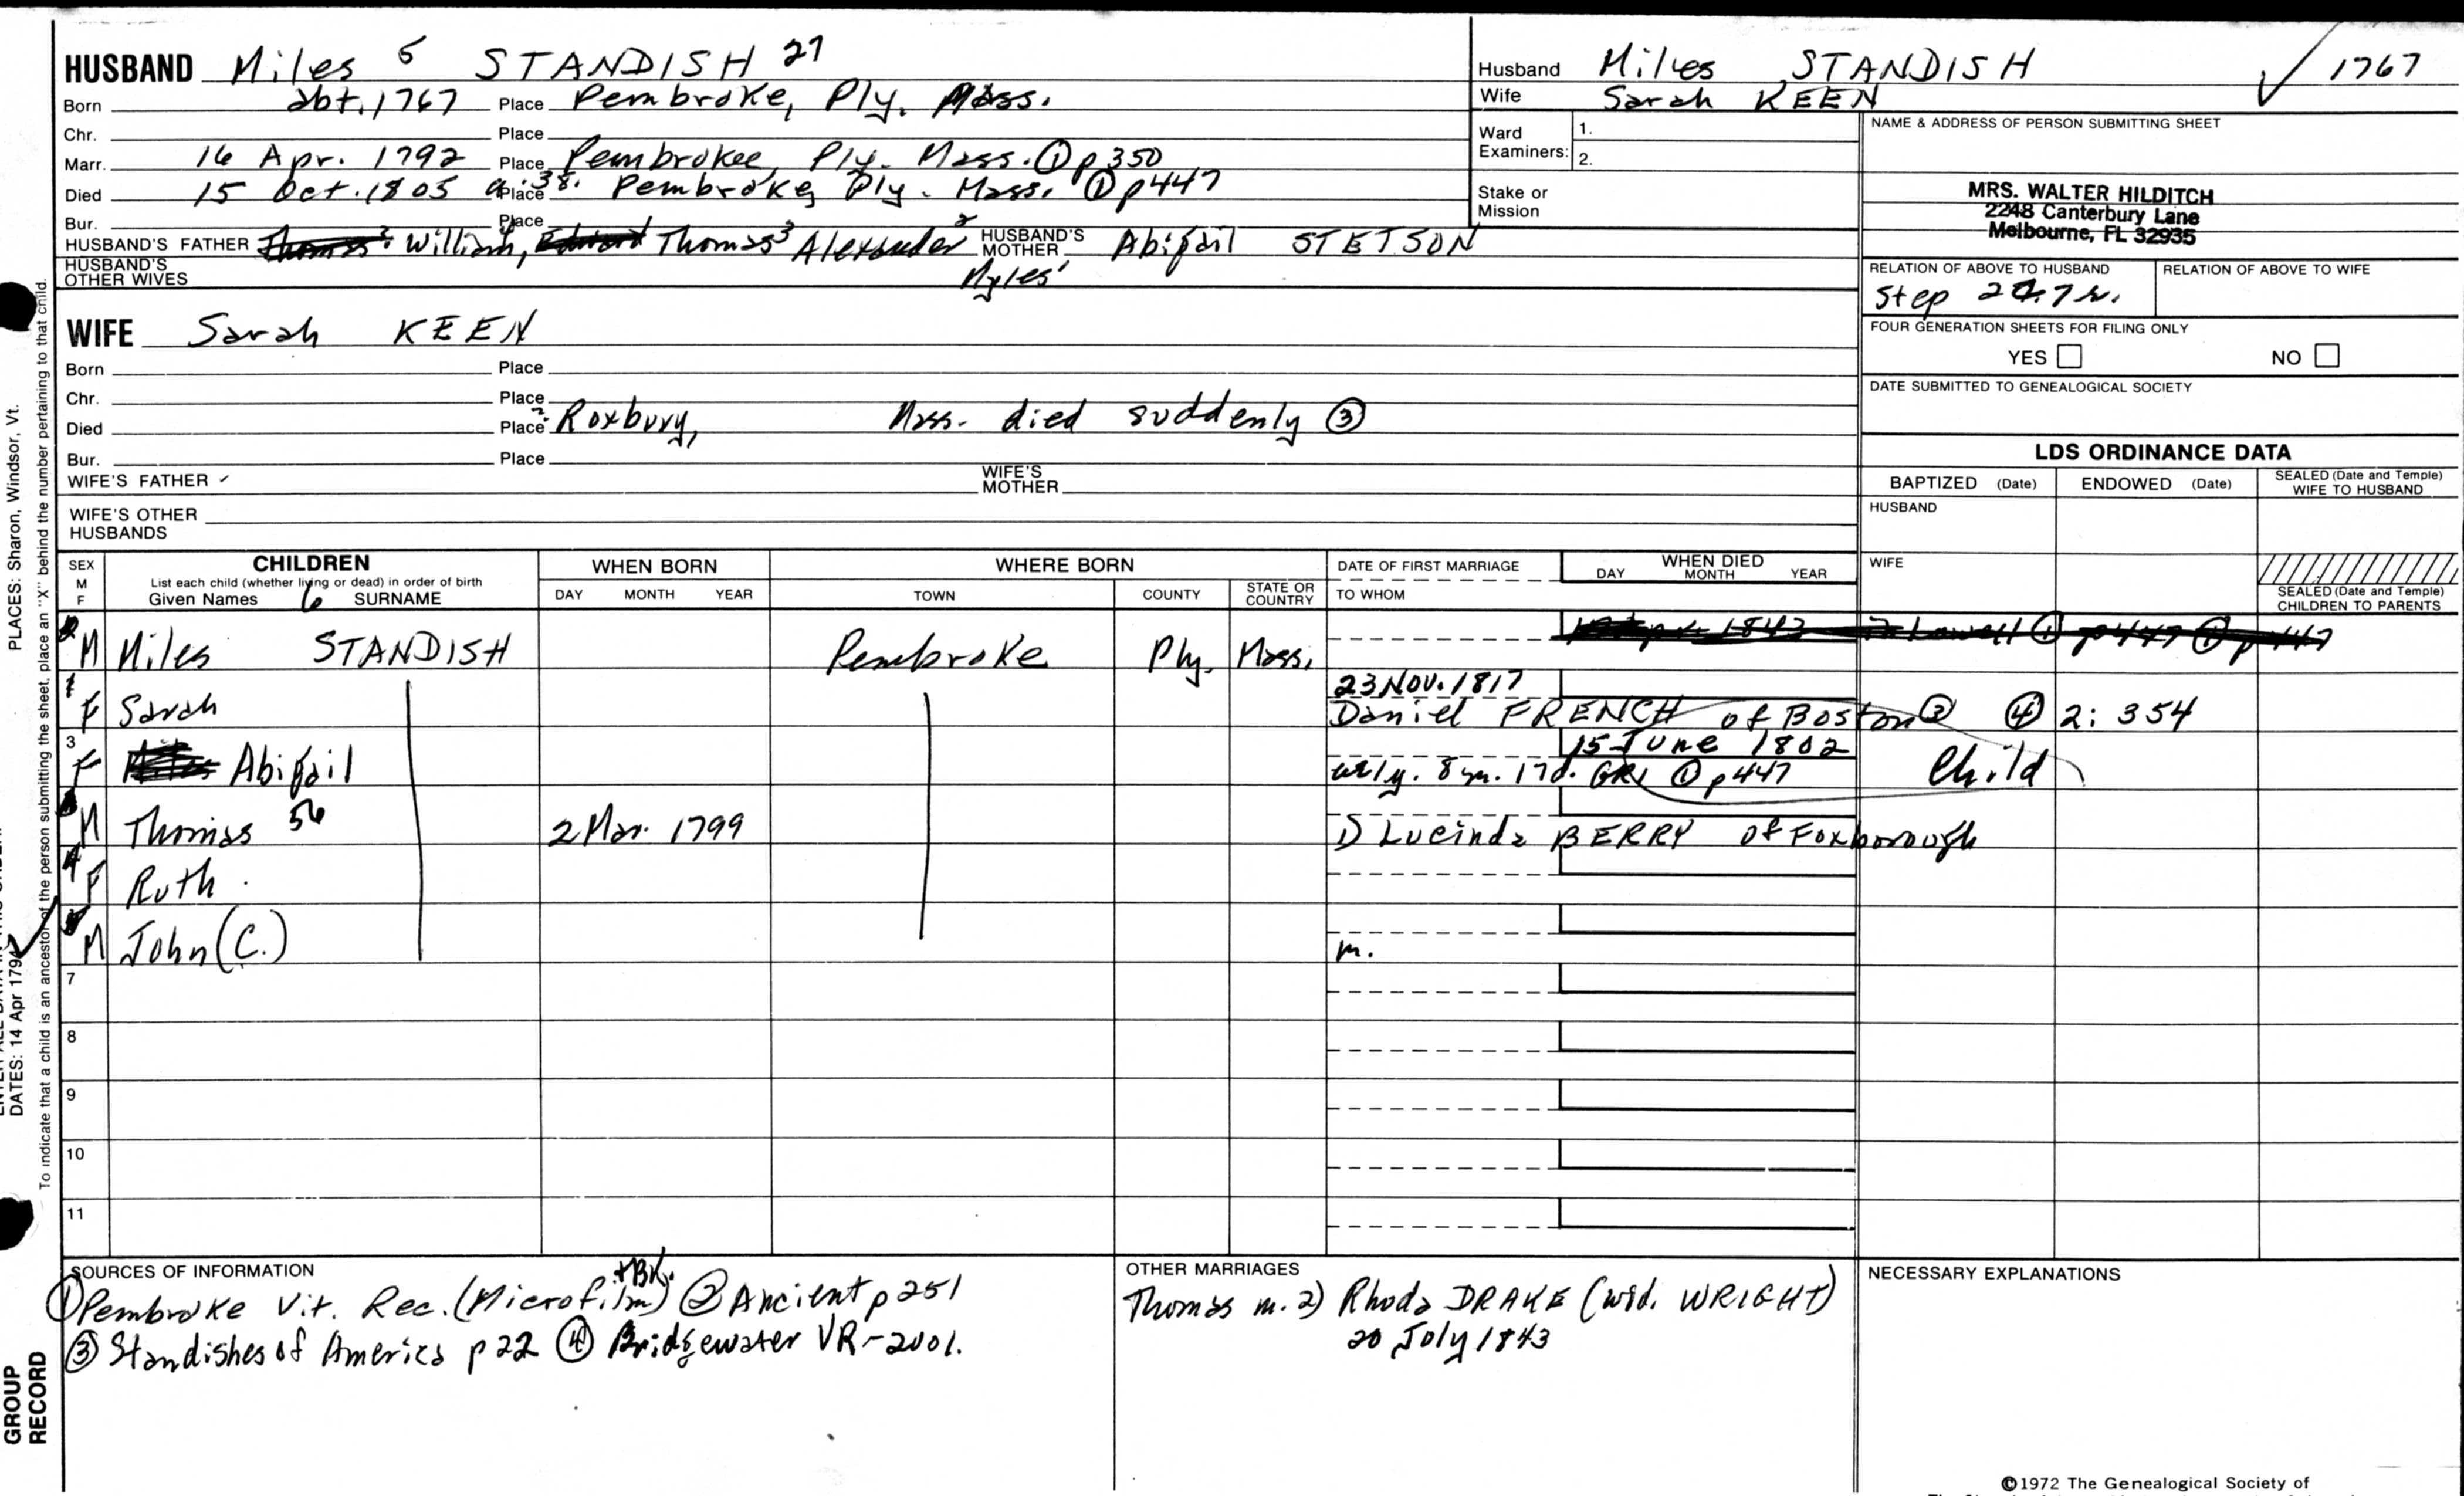 HUSBAND Miles 5 STANDISH 27
Born abt. 1767 Place Pembroke, Ply. Mass.
Chr. Place
Marr. 16 Apr. 1792 Place Pembrokee, Ply. Mass. ① p350
Died 15 Oct. 1805 a. 38. Place Pembroke, Ply. Mass. ① p447
Bur. Place
HUSBAND'S FATHER William, Thomas³ Alexander² HUSBAND'S MOTHER Abigail STETSON
HUSBAND'S OTHER WIVES Myles¹
Husband Miles STANDISH ✓ 1767
Wife Sarah KEEN
Ward Examiners: 1.
2.
Stake or Mission
NAME & ADDRESS OF PERSON SUBMITTING SHEET
MRS. WALTER HILDITCH
2248 Canterbury Lane
Melbourne, FL 32935
RELATION OF ABOVE TO HUSBAND RELATION OF ABOVE TO WIFE
Step
FOUR GENERATION SHEETS FOR FILING ONLY
YES NO
DATE SUBMITTED TO GENEALOGICAL SOCIETY
WIFE Sarah KEEN
Born Place
Chr. Place
Died Place ? Roxbury, Mass. died suddenly ③
Bur. Place
WIFE'S FATHER WIFE'S MOTHER
WIFE'S OTHER HUSBANDS
LDS ORDINANCE DATA
BAPTIZED (Date) ENDOWED (Date) SEALED (Date and Temple) WIFE TO HUSBAND
HUSBAND
WIFE
SEALED (Date and Temple) CHILDREN TO PARENTS
SEX M F CHILDREN WHEN BORN WHERE BORN DATE OF FIRST MARRIAGE WHEN DIED
List each child (whether living or dead) in order of birth
Given Names 6 SURNAME DAY MONTH YEAR TOWN COUNTY STATE OR COUNTRY TO WHOM DAY MONTH YEAR
2 M Miles STANDISH Pembroke Ply. Mass.
23 Nov. 1817
1 F Sarah Daniel FRENCH of Boston ③ ④ 2: 354
15 June 1802
3 F Abigail 8 m. 17d. GR1 ① p447 Child
M Thomas 56 2 Mar. 1799 1) Lucinda BERRY of Foxborough
4 F Ruth
M John (C.) m.
7
8
9
10
11
SOURCES OF INFORMATION
① Pembroke Vit. Rec. (Microfilm) + BK. ② Ancient p251
③ Standishes of America p22 ④ Bridgewater VR-2001.
OTHER MARRIAGES
Thomas m. 2) Rhoda DRAKE (wid. WRIGHT)
20 July 1843
NECESSARY EXPLANATIONS
©1972 The Genealogical Society of
PLACES: Sharon, Windsor, Vt.
DATES: 14 Apr 1794
To indicate that a child is an ancestor of the person submitting the sheet, place an "X" behind the number pertaining to that child.
GROUP
RECORD